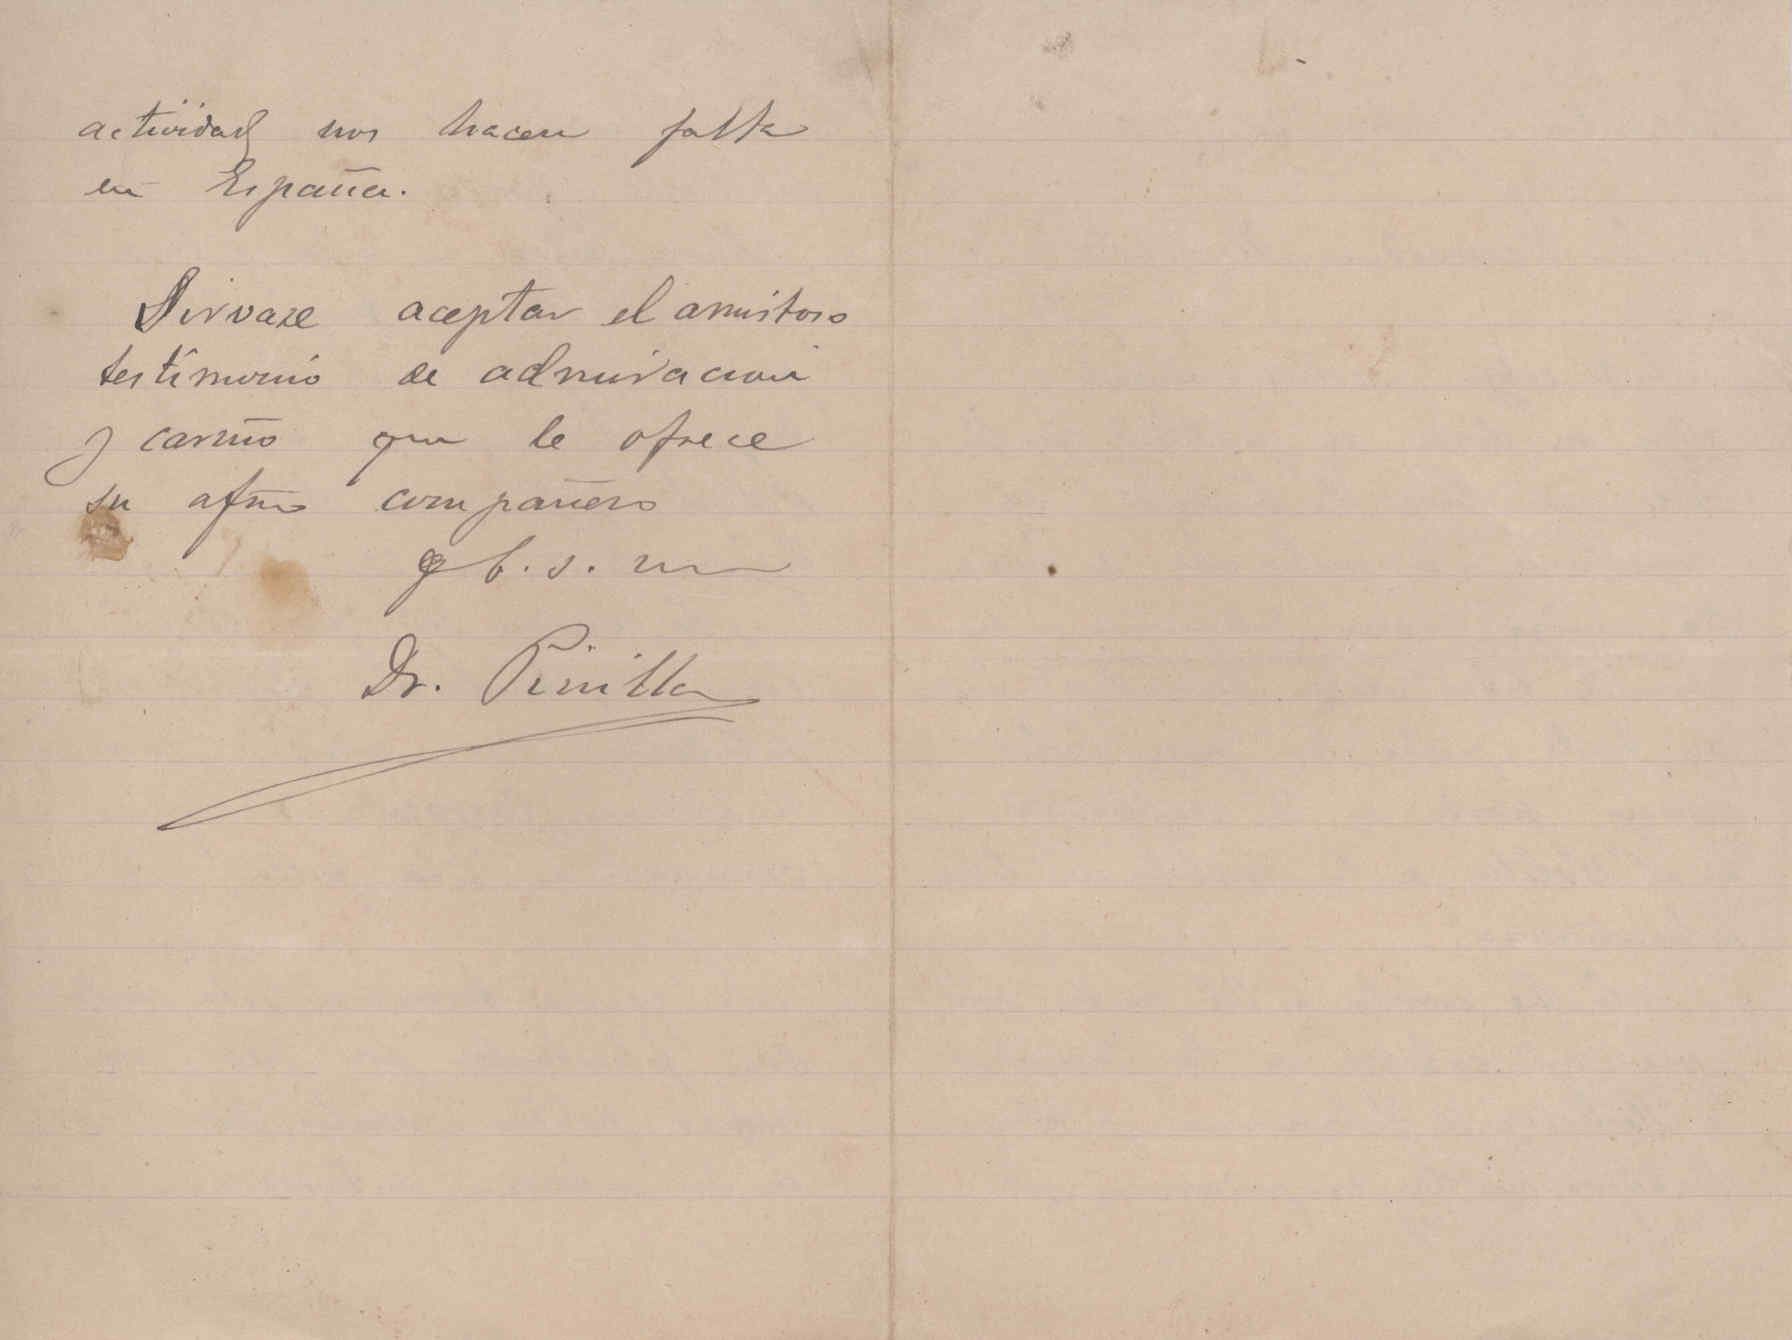 actividad nos hacen falta
en España.
Sirvase aceptar el amistoso
testimonio de admiracion
y cariño que le ofrece
su afmo compañero
q b. s. m
Dr. Pinilla